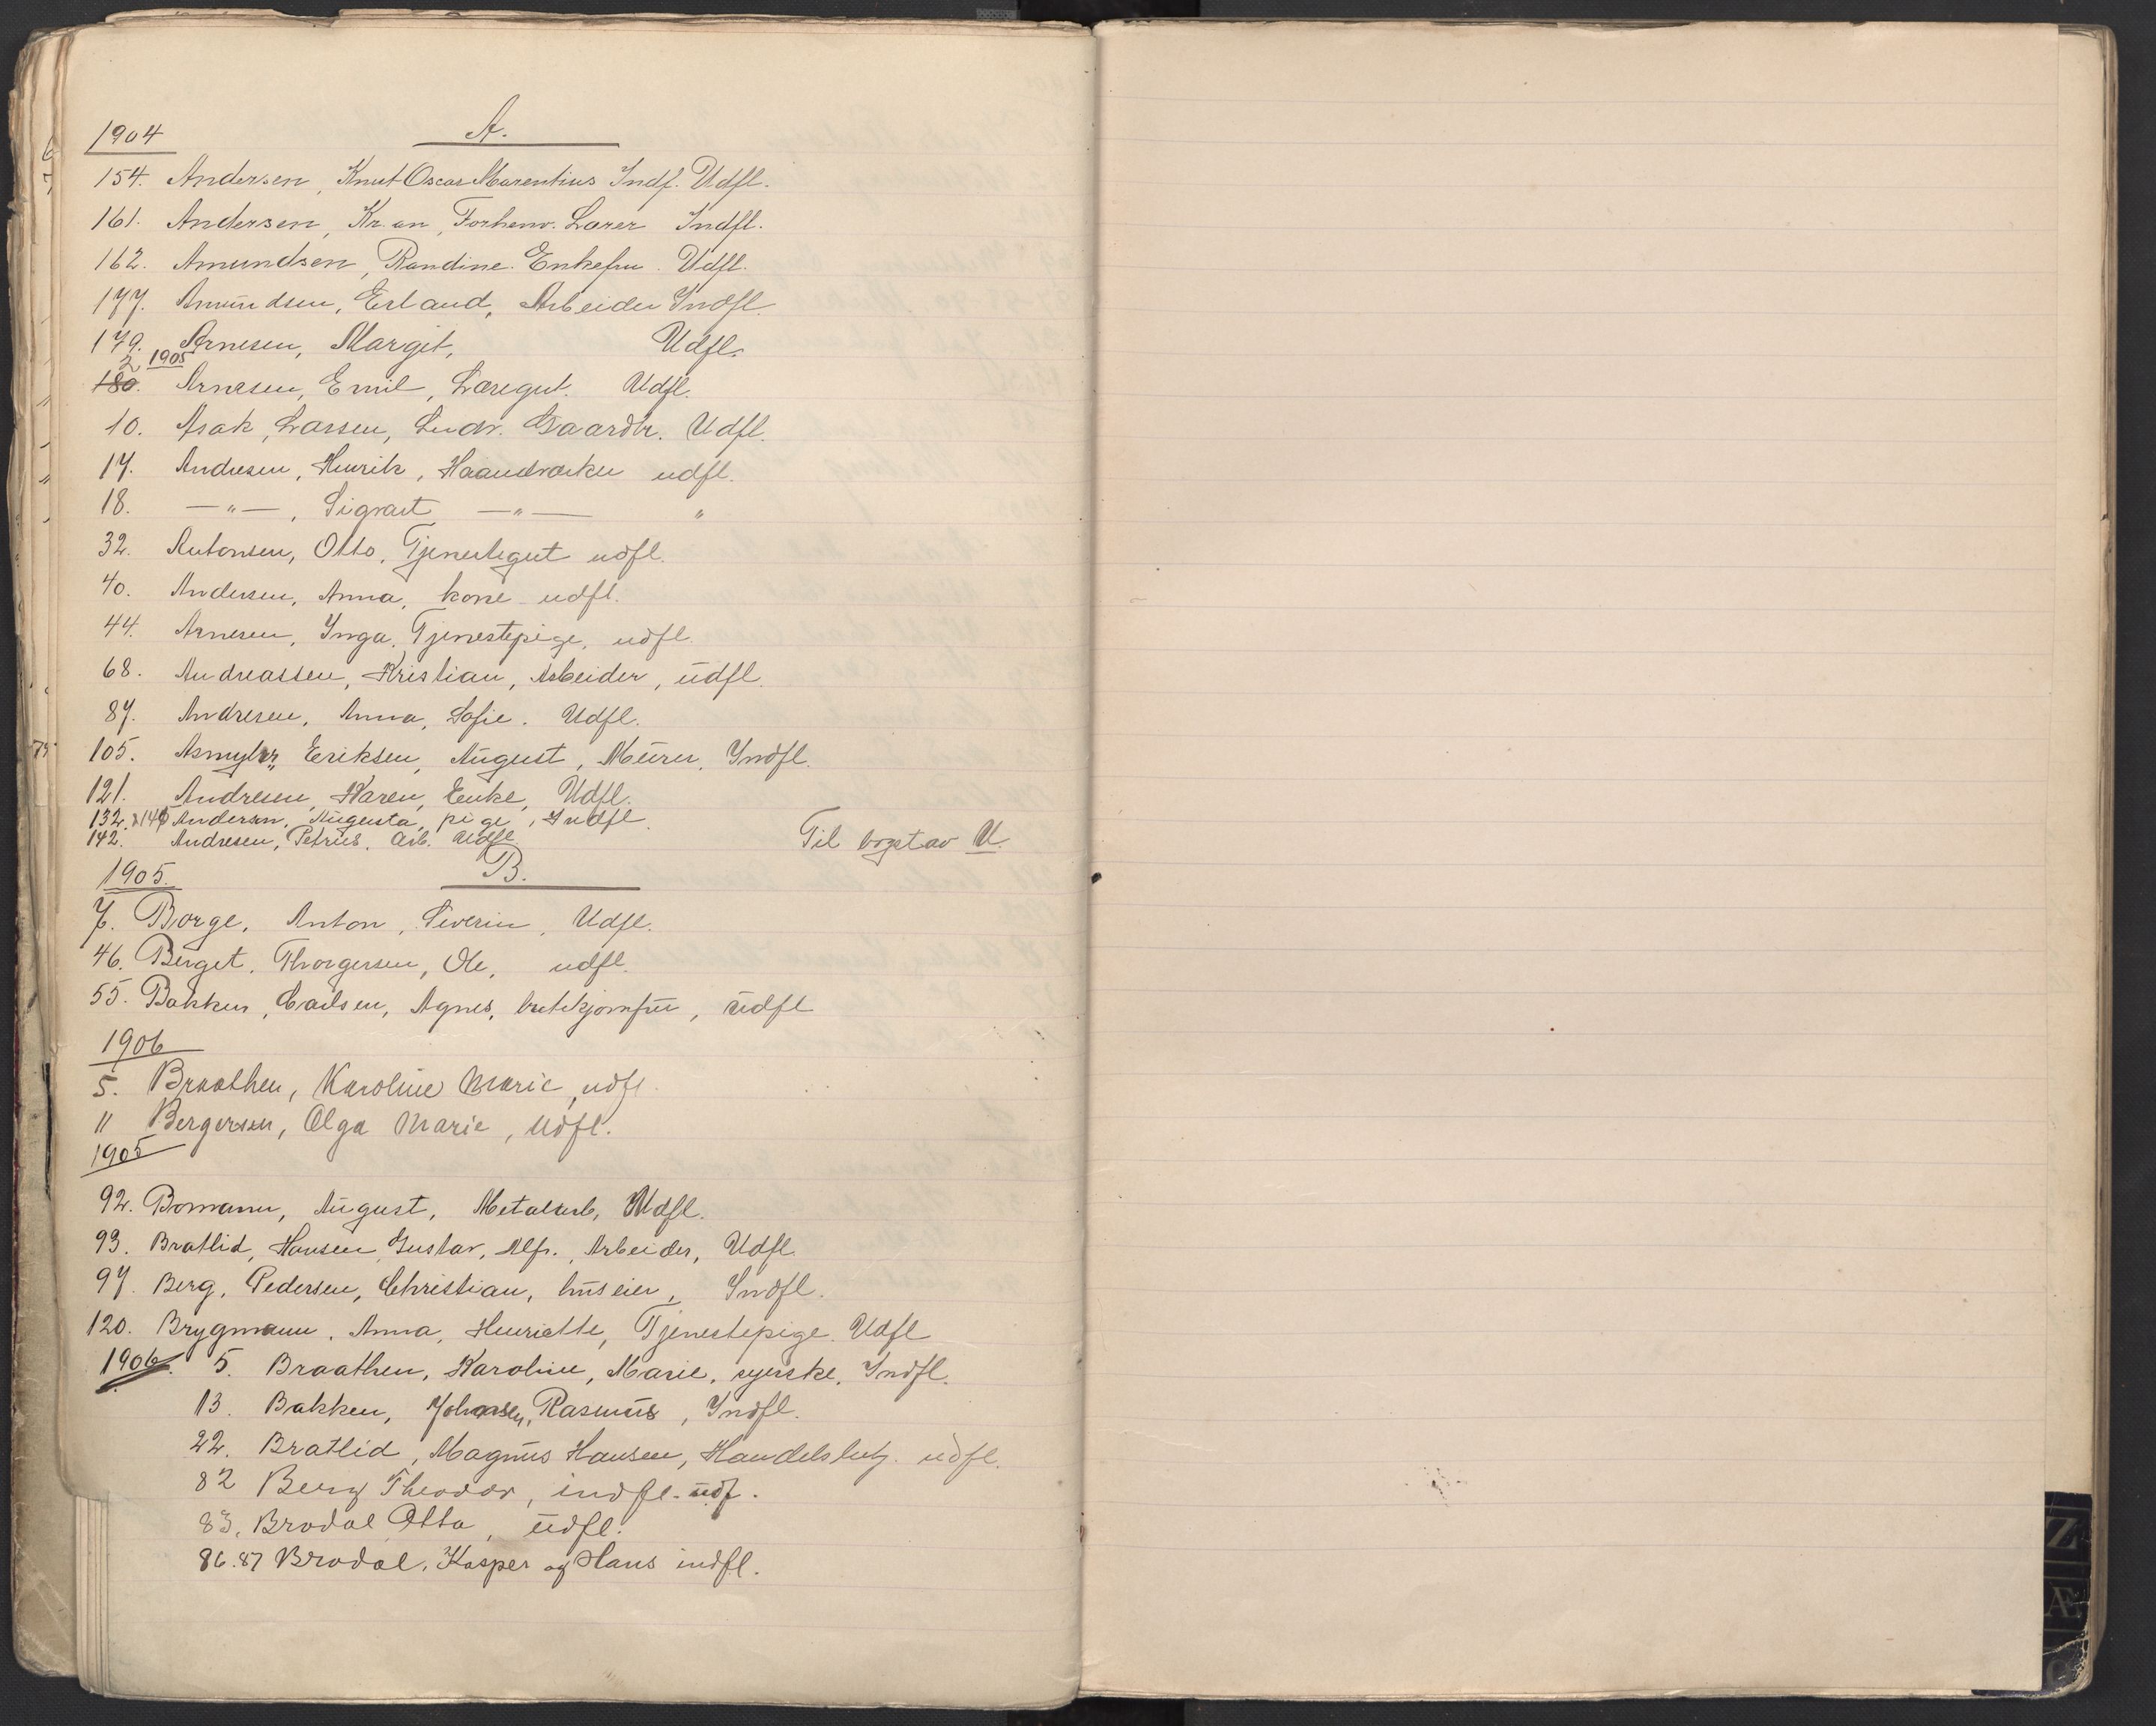 A.
1904
154. Andersen, Knut Oscar Marentius Indf. Udfl.
161. Andersen, Kr.an, Forhenv. Lærer Indfl.
162. Amundsen, Randine. Enkefru. Udfl.
177. Amundsen, Erland, Arbeider Indfl.
179. Arnesen, Margit, Udfl.
2 1905
180. Arnesen, Emil, Læregut. Udfl.
10. Asak, Larssen, Ludv. Gaardbr. Udfl.
17. Andresen, Henrik, Haandværker udfl.
18. —"—, Sigvart —"— "
32. Antonsen, Otto, Tjenestegut udfl.
40. Andersen, Anna, kone udfl.
44. Arnesen, Inga, Tjenestepige, udfl.
68. Andreassen, Kristian, Arbeider, udfl.
87. Andresen, Anna, Sofie. Udfl.
105. Asmyhr, Eriksen, August, Murer, Indfl.
121. Andresen, Karen, Enke, Udfl.
132. Andersen, Augusta, pige, Indfl.
142. Andresen, Petrus, Arb. Udfl.
Til bogstav U.
1905. B.
7. Borge, Anton, Severin, Udfl.
46. Berget, Thorgersen, Ole, udfl.
55. Bakken, Carlsen, Agnes, udfl
1906
5. Braathen, Karoline Marie, udfl.
11 Bergersen, Olga Marie, udfl.
1905
92. Bomann, August, Metalarb, Udfl.
93. Bratlid, Hansen Gustav, Alfr., Arbeider, Udfl.
97. Berg, Pedersen, Christian, huseier, Indfl.
120. Brygmann, Anna, Henriette, Tjenestepige Udfl
1906. 5. Braathen, Karoline, Marie, syerske, Indfl.
13. Bakken, Johansen, Rasmus, Indfl.
22. Bratlid, Magnus Hansen, Handelsbetj. udfl.
82 Berg Theodor, indfl. udf.
83. Brodal Otto, udfl.
86.87 Brodal, Kasper og Hans indfl.
Z
Æ